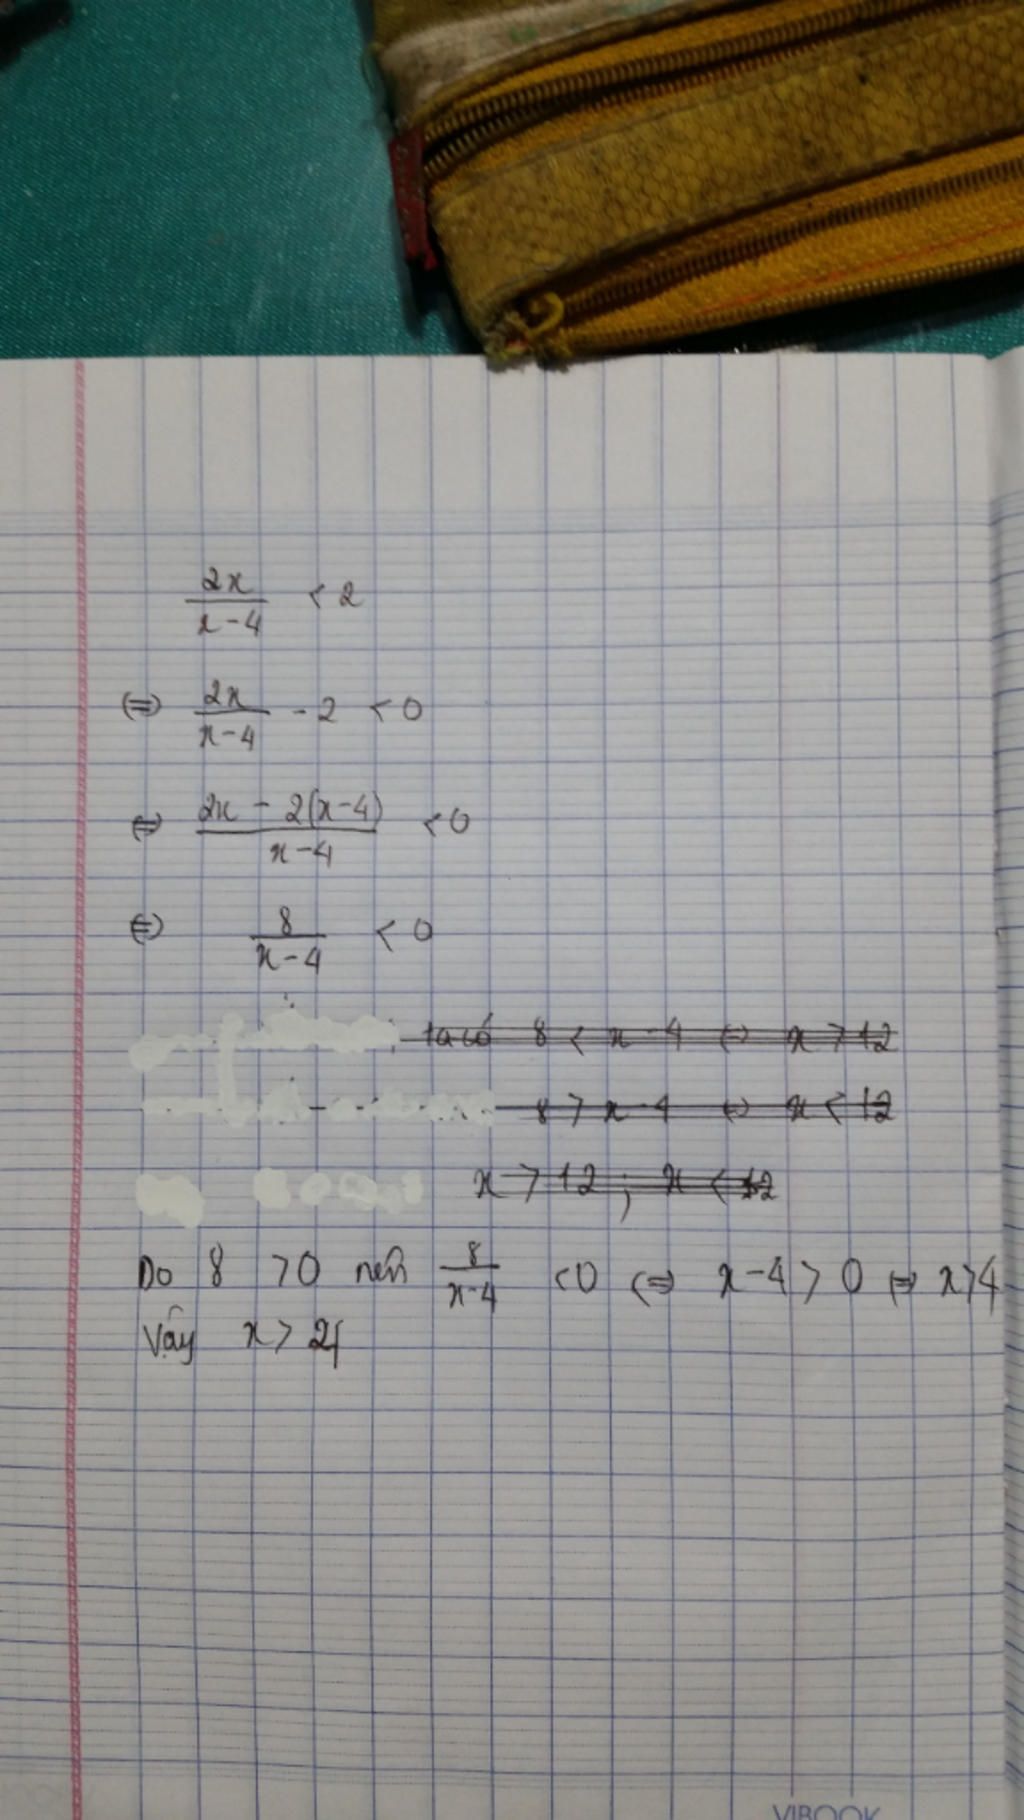 2x/(x-4) < 2
⇔ 2x/(x-4) - 2 < 0
⇔ (2x - 2(x-4))/(x-4) < 0
⇔ 8/(x-4) < 0
ta có 8 < x-4 ⇔ x > 12
8 > x-4 ⇔ x < 12
x > 12 ; x < 12
Do 8 > 0 nên 8/(x-4) < 0 ⇔ x-4 > 0 ⇔ x > 4
Vậy x > 4
VIBOOK